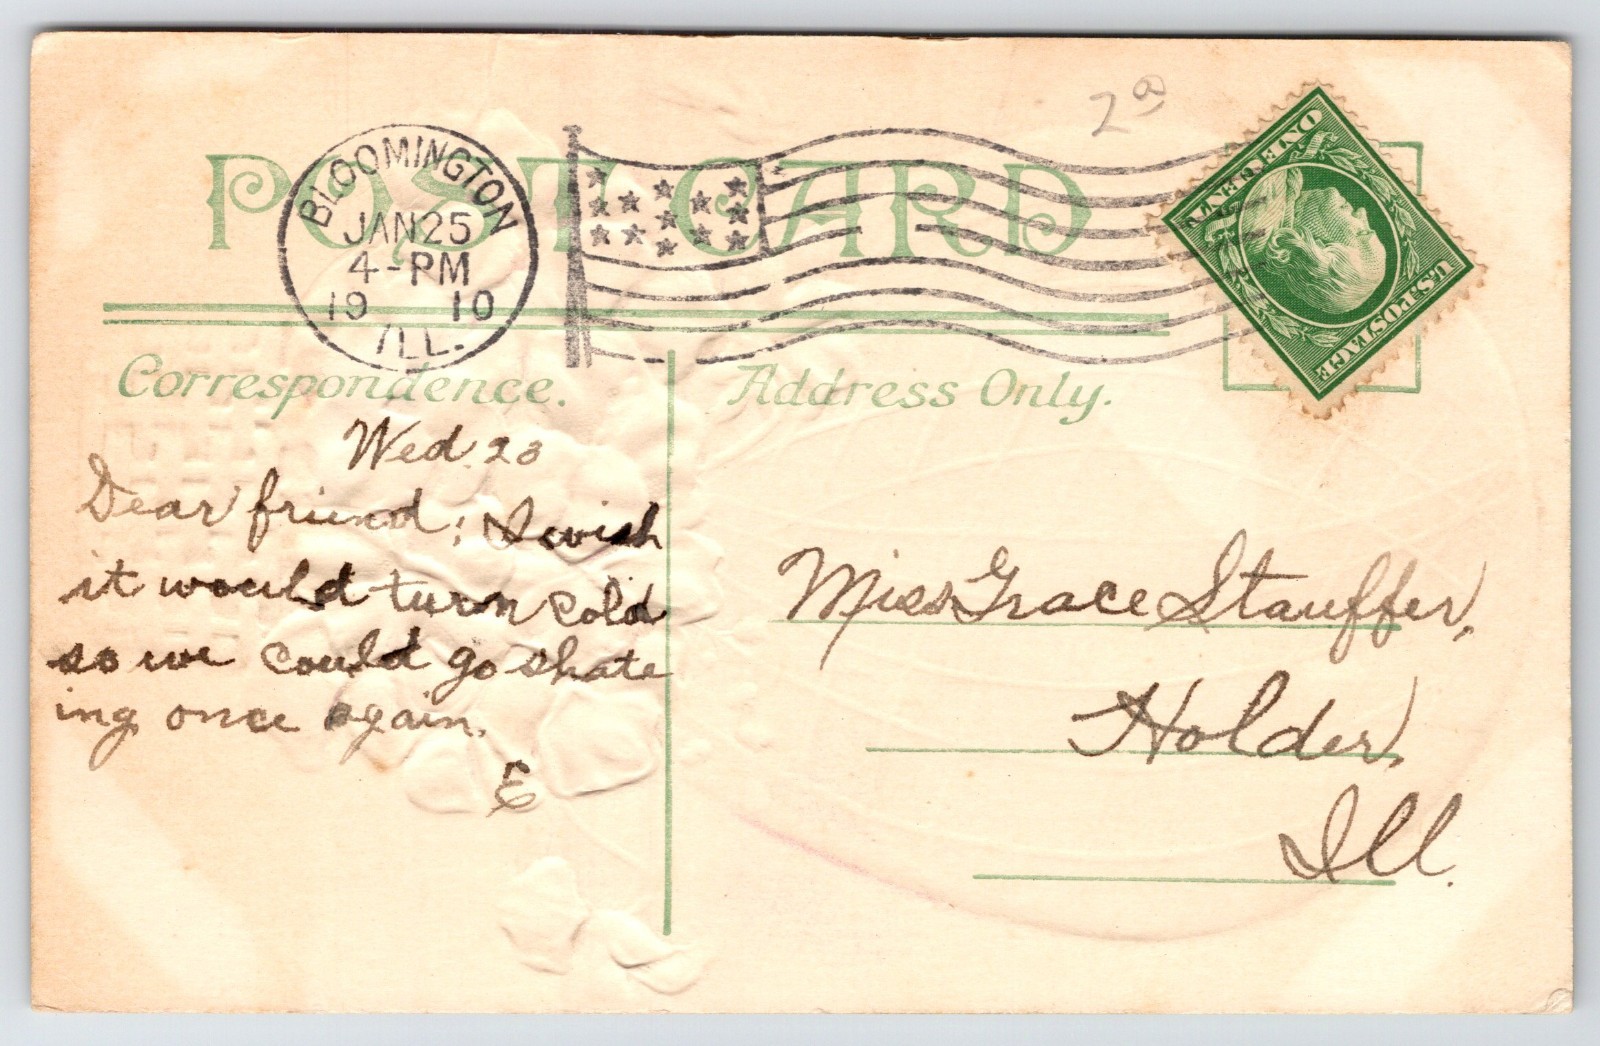 POST CARD
BLOOMINGTON
JAN 25
4-PM
1910
ILL.
ONE CENT ONE
U.S. POSTAGE
Correspondence.
Address Only.
Wed. 23
Dear friend; I wish
it would turn cold
so we could go skate
ing once again.
E
Miss Grace Stauffer,
Holder,
Ill.